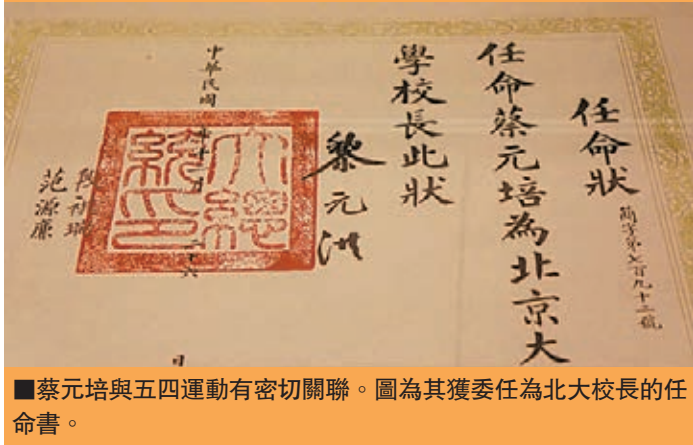 任命狀
簡字第七百九十二號
任命蔡元培為北京大
學校長此狀
黎元洪
大總
統印
中華民國 十二月 二十六 日
段祺瑞
范源廉
■蔡元培與五四運動有密切關聯。圖為其獲委任為北大校長的任
命書。